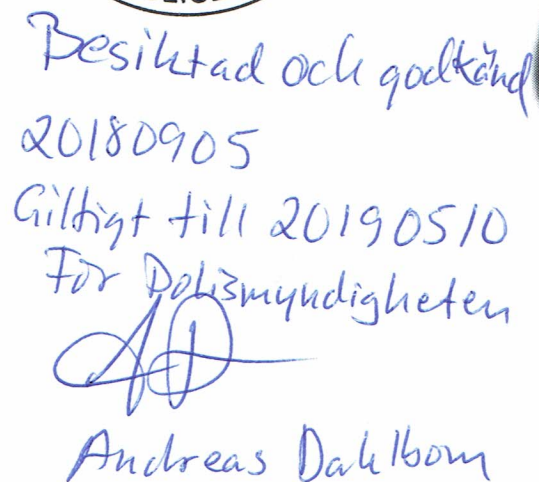 Besiktad och godkänd
20180905
Giltigt till 20190510
För Polismyndigheten
Andreas Dahlbom